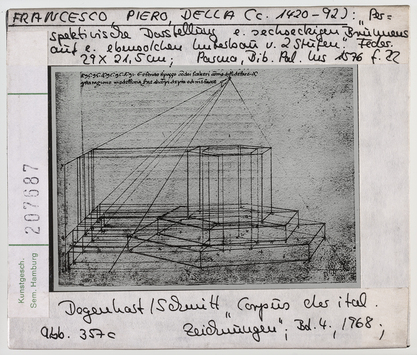 FRANCESCO PIERO, DELLA (c. 1420-92): "Per-
spektivische Darstellung e. sechseckigen Brunnens
auf e. ebensolchen Unterbau v. 2 Stufen." Feder.
29 x 21,5cm; Parma, Bib. Pal. Ms 1576 f. 22
207687
Kunstgesch.
Sem. Hamburg
Degenhart/Schmitt "Corpus der ital.
Zeichnungen", Bd. 4, 1968;
Abb. 357c